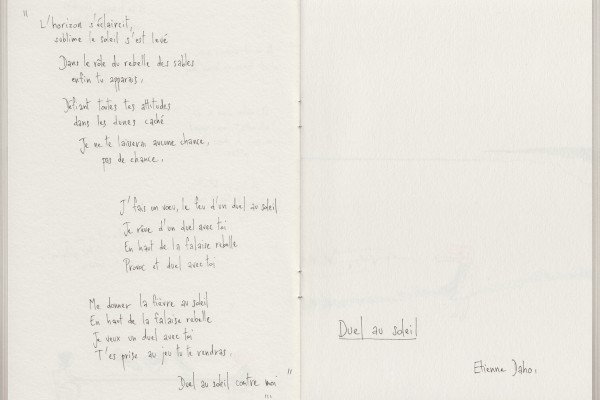 "
L'horizon s'éclaircit,
sublime le soleil s'est levé
Dans le rôle du rebelle des sables
enfin tu apparais.
Défiant toutes tes attitudes
dans les dunes caché
Je ne te laisserai aucune chance,
pas de chance.
J'fais un voeu, le feu d'un duel au soleil
Je rêve d'un duel avec toi
En haut de la falaise rebelle
Provoc et duel avec toi
Me donner la fièvre au soleil
En haut de la falaise rebelle
Je veux un duel avec toi
T'es prise au jeu tu te rendras.
Duel au soleil contre moi "
...
Duel au soleil
Etienne Daho.